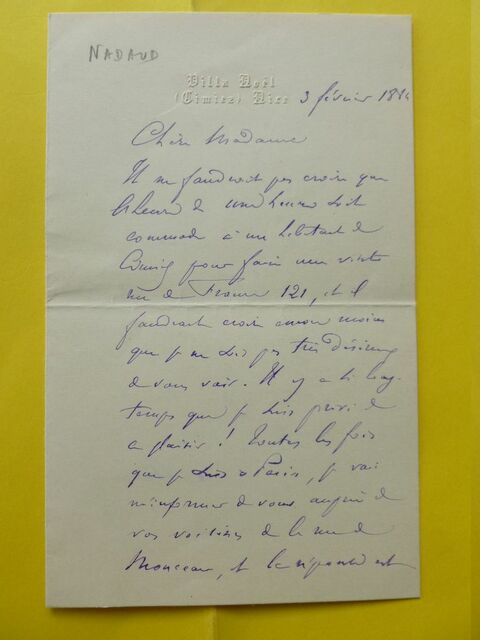 NADAUD
Villa Noël
(Cimiez) Nice
3 février 18
Chère Madame
Il ne faudrait pas croire que
l'heure de une heure soit
commode à un habitant de
Cimiez pour faire une visite
rue de France 121, et il
faudrait croire encore moins
que je ne sois pas très désireux
de vous voir. Il y a si long-
temps que je suis privé de
ce plaisir ! Toutes les fois
que je suis à Paris, je vais
m'informer de vous auprès de
vos voisines de la rue de
Monceau, et la réponse est